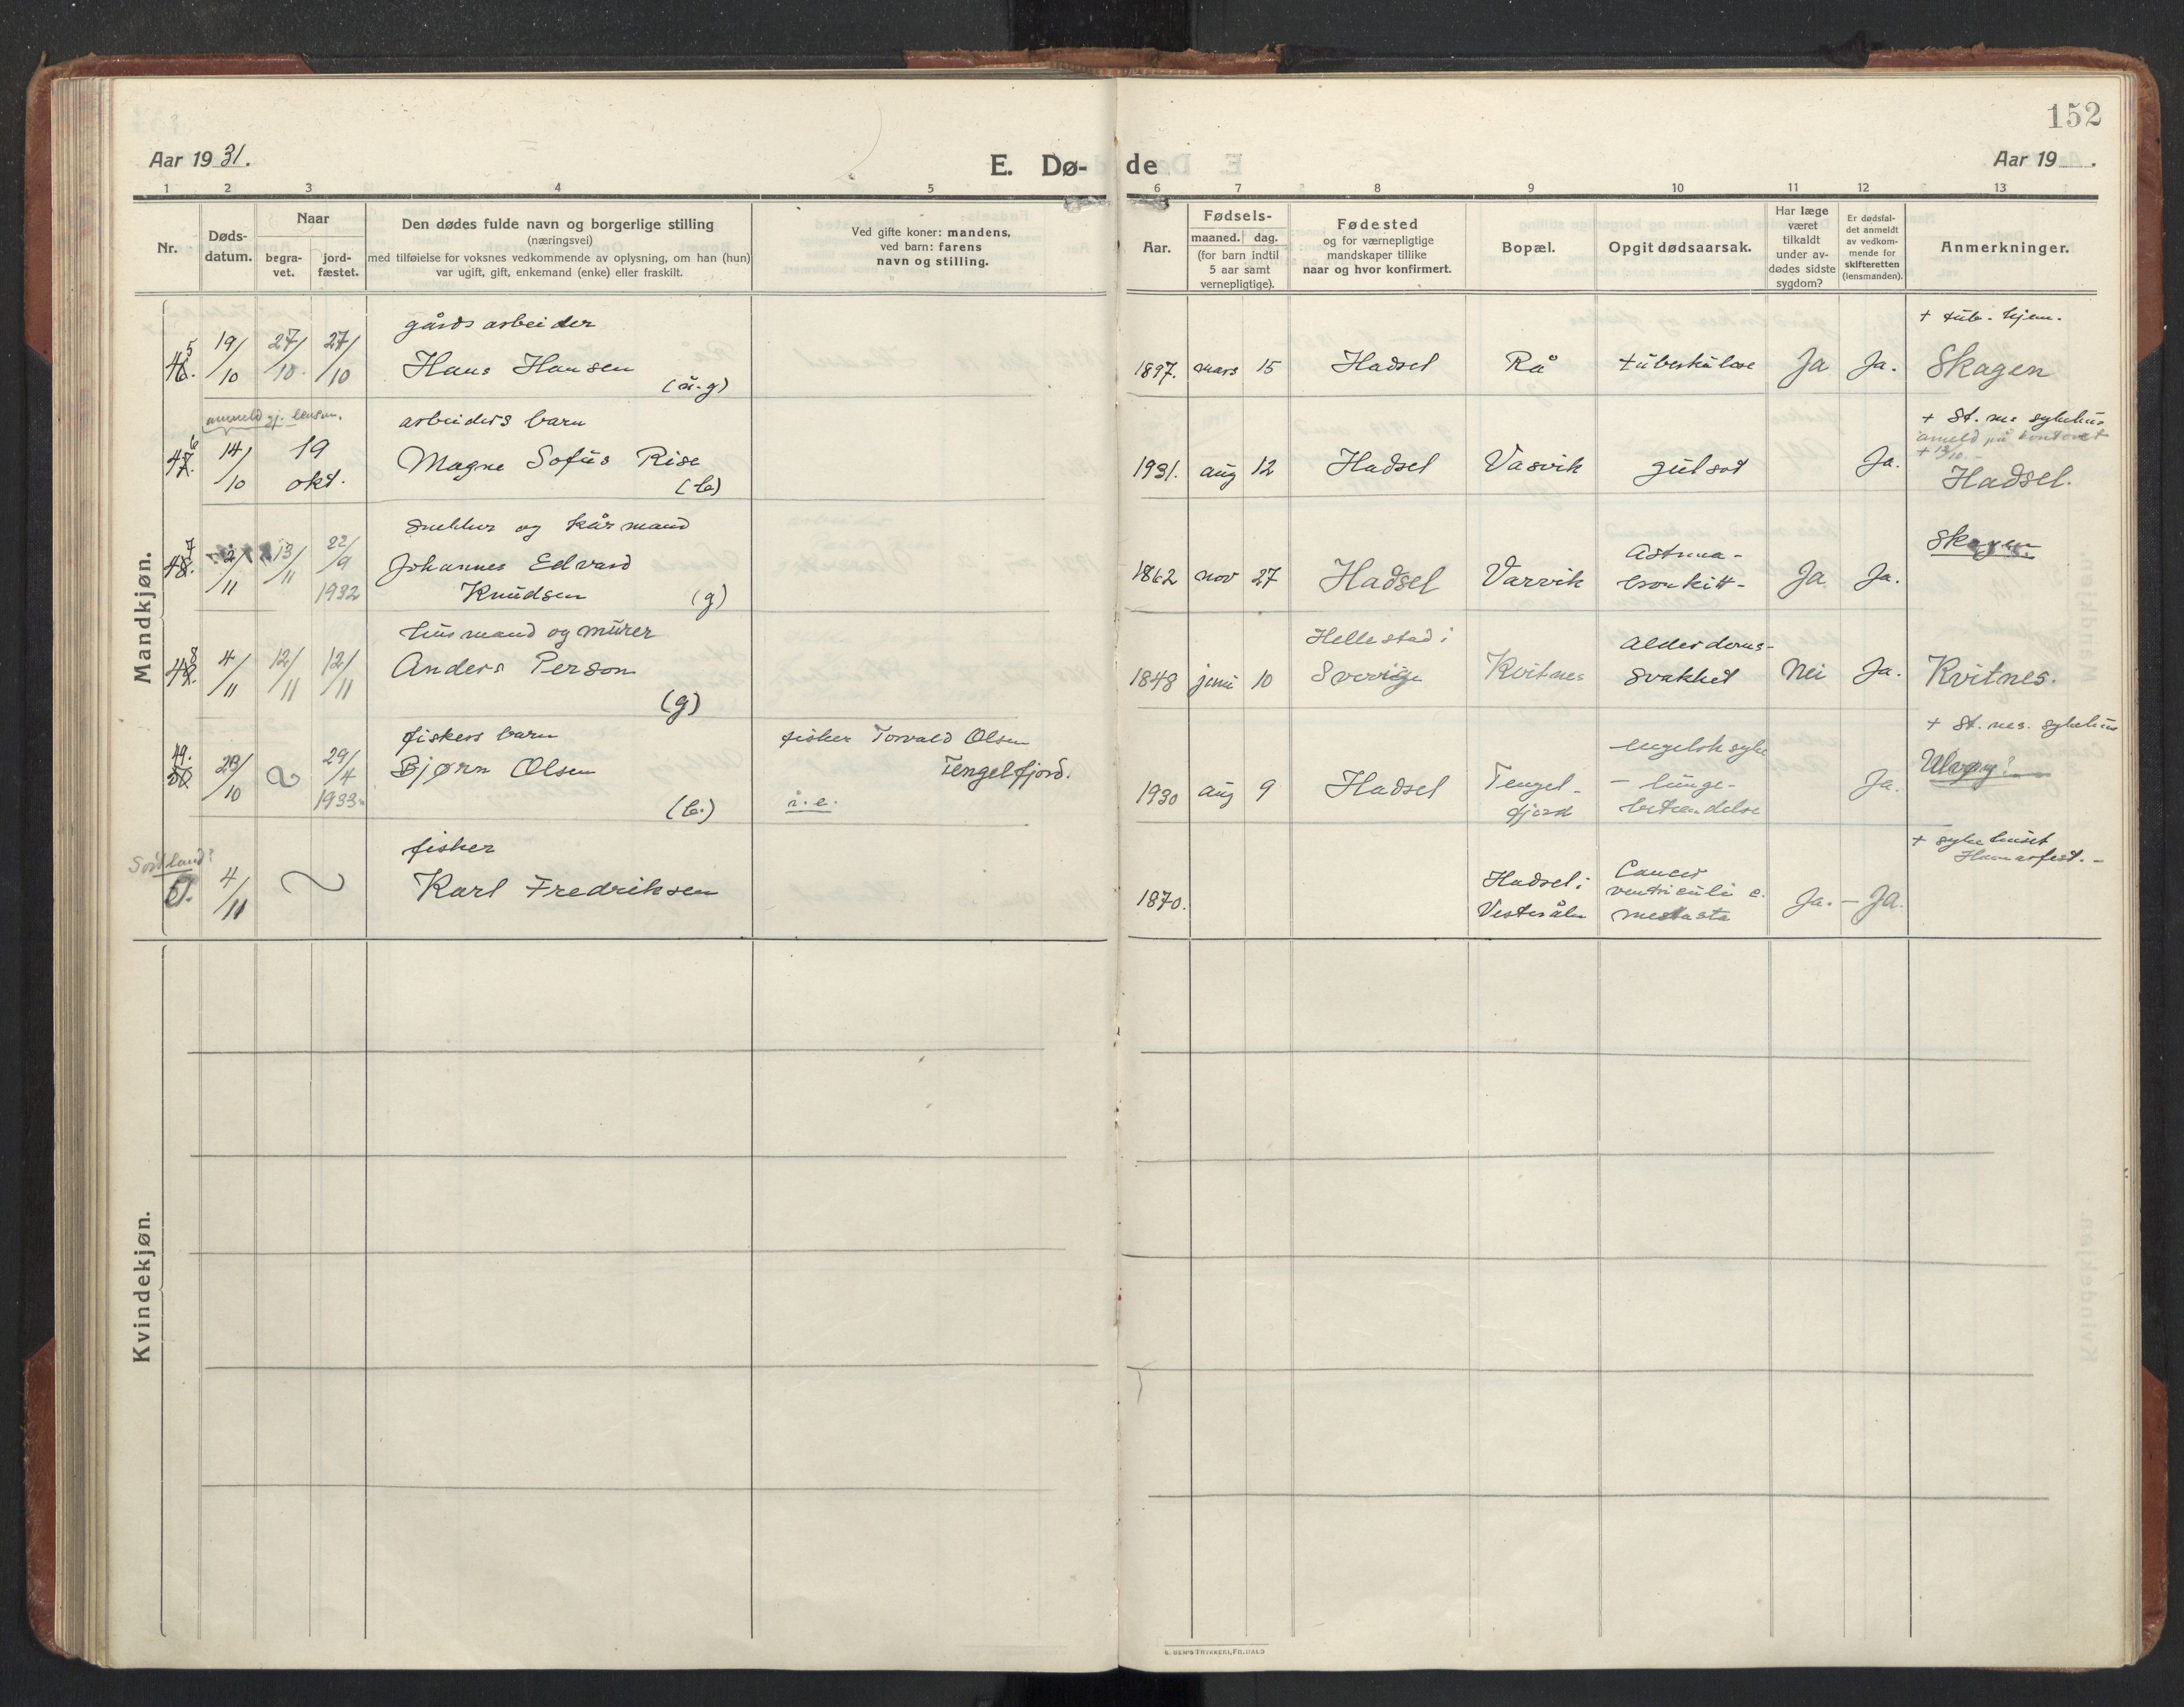 152
Aar 1931.
E. Dø-
de
Aar 19 .
1 2 3 4 5 6 7 8 9 10 11 12 13
Nr.
Døds-
datum.
Naar
begra-
vet.
jord-
fæstet.
Den dødes fulde navn og borgerlige stilling
(næringsvei)
med tilføielse for voksnes vedkommende av oplysning, om han (hun)
var ugift, gift, enkemand (enke) eller fraskilt.
Ved gifte koner: mandens,
ved barn: farens
navn og stilling.
Aar.
Fødsels-
maaned. dag.
(for barn indtil
5 aar samt
vernepligtige).
Fødested
og for værnepligtige
mandskaper tillike
naar og hvor konfirmert.
Bopæl.
Opgit dødsaarsak.
Har læge
været
tilkaldt
under av-
dødes sidste
sygdom?
Er dødsfal-
det anmeldt
av vedkom-
mende for
skifteretten
(lensmanden).
Anmerkninger.
Mandkjøn.
45.
19/10
27/10.
27/10
gårdsarbeider
Hans Hansen
(u.g)
1897. mars 15
Hadsel
Rå
tuberkulose
Ja
Ja.
+ tub. hjem.
Skagen
anmeld gj. lensm.
46.
14/10
19
okt.
arbeiders barn
Magne Sofus Rise
(b)
1931. aug 12
Hadsel
Vasvik
gulsot
Ja.
+ St. nes sykehus
anmeld på kontoret
+ 13/10 -
Hadsel.
47.
2/11
13/11
22/9
1932
snekker og kårmand
Johannes Edvard
Knudsen
(g)
1862 nov 27
Hadsel
Varvik
Astma-
bronkitt-
Ja
Ja.
Skagen
48.
4/11
12/11
12/11
husmand og murer
Anders Person
(g)
1848 juni 10
Hellestad i
Sverige
Kvitnes
Alderdoms-
svakhet
Nei
Ja.
Kvitnes.
49.
50
28/10
29/4
1933
fiskers barn
Bjørn Olsen
(b.)
fisker Torvald Olsen
Tengelfjord.
u.e.
1930 aug 9
Hadsel
Tengel-
fjord
engelsk syke
- lunge-
betændelse
Ja.
+ St. nes. sykehus
Sortland?
51.
4/11
fisker
Karl Fredriksen
1870.
Hadsel i
Vesterålen
Cancer
ventriculi c.
metasta
Ja. - Ja.
+ sykehuset
Hammerfest. -
Kvindekjøn.